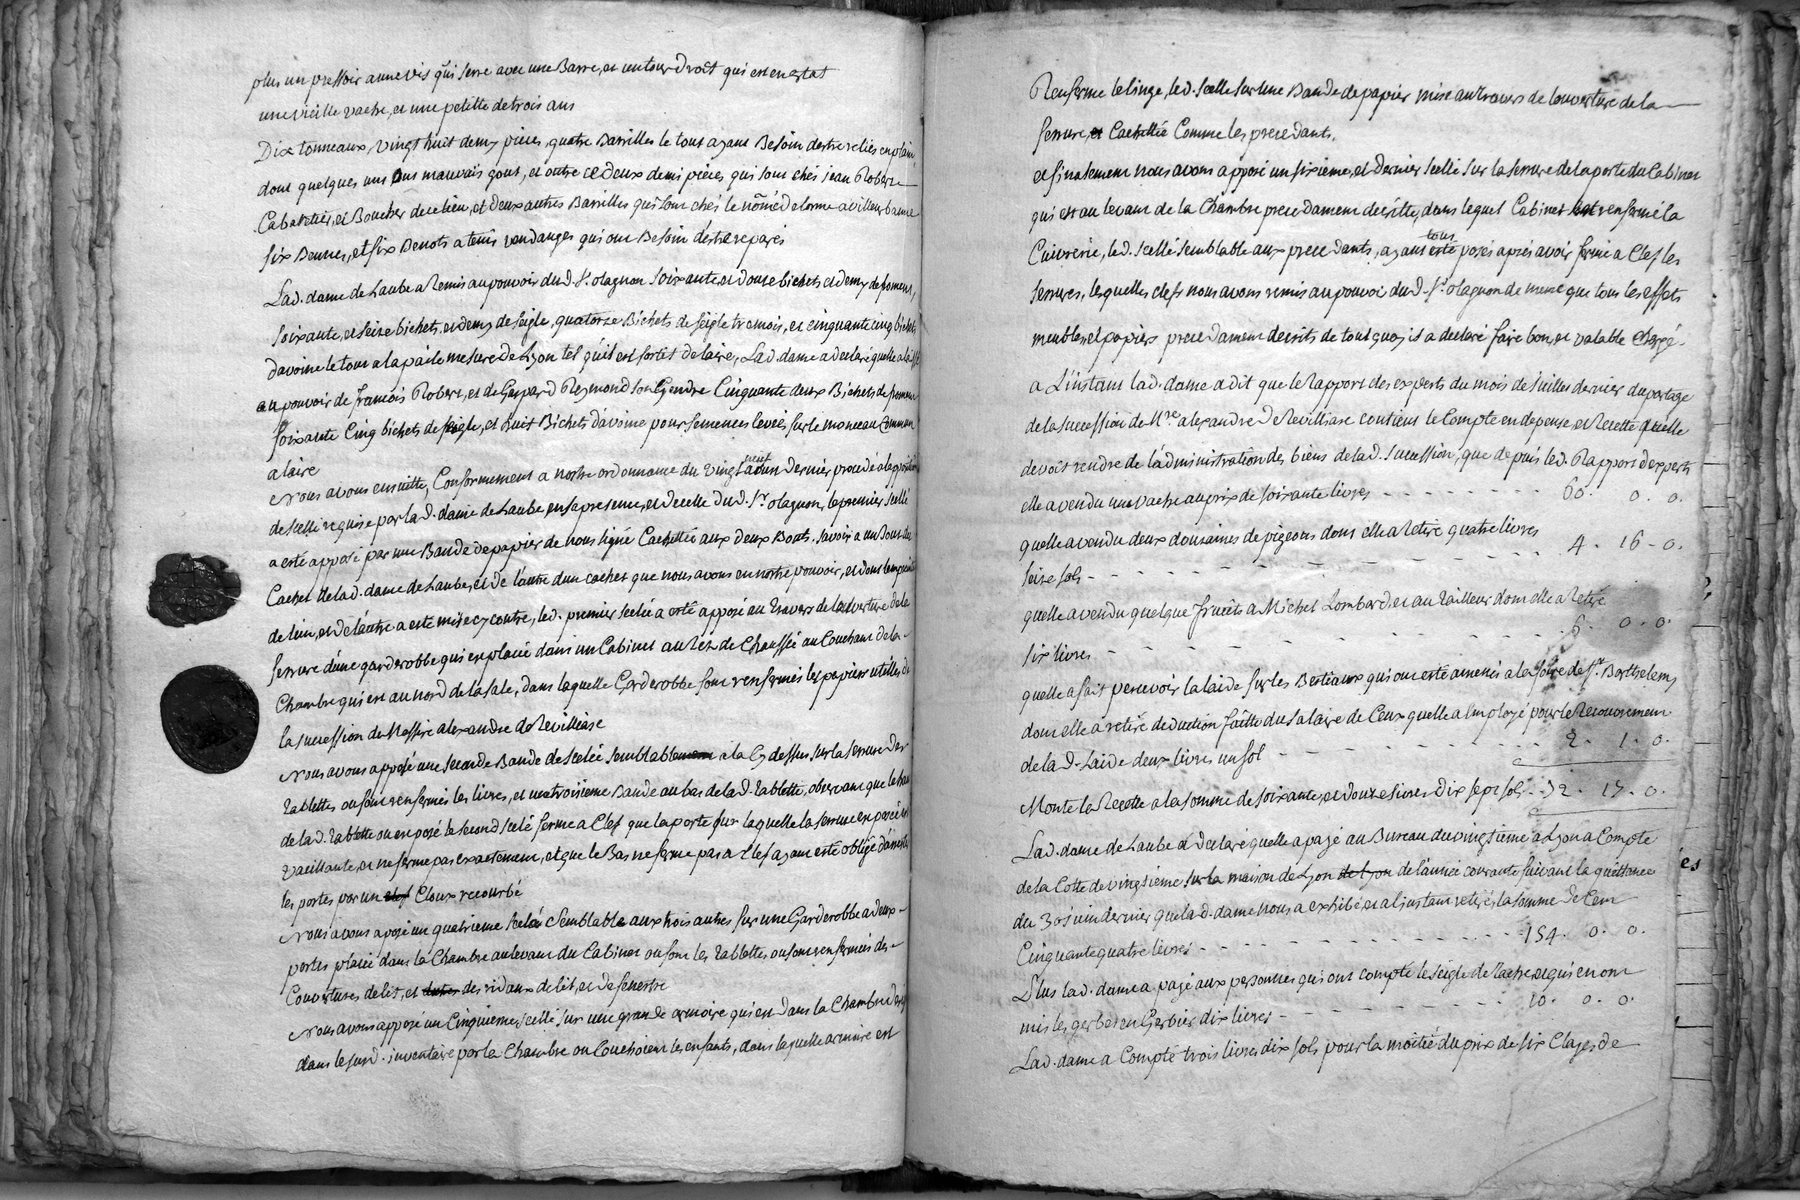 plus un pressoir a une vis qui serre avec une Barre, et un tour droit qui est en estat
une vieille vache, et une petitte de trois ans
Dix tonneaux, vingt huit demy pieces, quatre Barrilles le tout ayant Besoin destre reliés en plain,
dont quelques uns ont mauvais gout, et outre ce deux demi pieces qui sont chés jean Robert
Cabaretier, et Boucher de ce lieu, et deux autres Barrilles qui sont chés le nommé delorme a villeurbanne
six Bennes, et six Benots a tenir vendanges qui ont Besoin d'estre reparés
Lad. dame de Laube a Remis au pouvoir du d. Sr. olagnon soixante et douze bichets et demy de froment,
soixante et seize bichets et demy de seigle, quatorze Bichets de seigle tremois, et cinquante cinq bichets
davoine le tout a la paile mesure de Lyon tel qu'il est sortit de laire, Lad. dame a declaré quelle a laissé
au pouvoir de francois Robert, et de Gaspard Reymond son Gendre Cinquante deux Bichets de froment
soixante Cinq bichets de seigle, et huit Bichets d'avoine pour semences levés sur le monceau Commun
a laire
Nous avons ensuitte, Conformement a nostre ordonnance du vingt neuf dernier procedé a lapposition
de scellé requise par lad. dame de Laube, en sa presence, et de celle du d. Sr. olagnon, le premier scellé
a esté apposé par une Bande de papier de nous signé Cachettée aux deux Bouts, savoir a un bout du
Cachet de lad. dame de Laube, et de l'autre d'un cachet que nous avons en nostre pouvoir, et dont lempreinte
de l'un, et de l'autre a esté mise cy contre, led. premier scelée a esté apposé au travers de l'ouverture de la
serrure d'une garderobbe qui en placée dans un Cabinet au Réz de Chaussée au Couchant de la
Chambre qui est au nord de la sale, dans laquelle Garderobbe sont renfermés les papiers utilles de
la succession de Messire alexandre de Revilliase
Nous avons apposé une seconde Bande de scelée semblable a la Cy dessus sur la serrure des
tablettes ou sont renfermés les livres, et une troisieme Bande au bas de lad. tablette, observant que le haut
de lad. tablette ou en posé le second scelé ferme a Clef que la porte sur laquelle la serrure en posée est
vacillante, et ne ferme pas exactement, et que le Bas ne ferme pas a Clef ayant esté obligé d'arrester
les portes par un clef Cloux recourbé
Nous avons aposé un quatrieme scelée semblable aux trois autres sur une Garderobbe a deux
portes placée dans la Chambre au levant du Cabinet ou sont les tablettes ou sont renfermés des
Couvertures de lit, et des ridaux de lit, et de fenestre
Nous avons apposé un Cinquieme scellé sur une grande armoire qui est dans la Chambre designée
dans le susd. inventaire par la Chambre ou Couchoient les enfants, dans laquelle armoire est
Renfermé le linge, led. scellé sur une Bande de papier mise au travers de louverture de la
serrure, et Cachettée Comme les precedants.
et finalement nous avons apposé un sixieme, et Dernier scellé sur la serrure de la porte du Cabinet
qui est au levant de la Chambre precedament decritte, dans lequel Cabinet est renfermé la
Cuivrerie, led. scellé semblable aux precedants, ayants tous esté posés aprés avoir fermé a Clef les
serrures, lesquelles clefs nous avons remis au pouvoir du d. Sr. olagnon de meme que tous les effets
meubles et papiers precedament decrits de tout quoy il a declaré faire bon, et valable Chargé.
a L'instant lad. dame a dit que le Rapport des experts du mois de Juillet dernier du partage
de la succession de Mre. alexandre de Revilliase contient le Compte en depense, et Recette quelle
devoit rendre de l'administration des biens de lad. sucession, que depuis led. Rapport d'experts
elle a vendu une vache au prix de soixante livres - - - - - - - - 60. 0. 0.
quelle a vendu deux douzaines de pigeons dont elle a Retiré quatre livres
seize sols - - - - - - - - - - - - - - 4. 16. 0.
quelle a vendu quelque fruits a Michel Lombard, et au tailleur dont elle a Retiré
six livres - - - - - - - - - - - - - 6. 0. 0.
quelle a fait percevoir la laide sur les Bestiaux qui ont esté amenés a la foire de St. Barthelemy
dont elle a retiré deduction faitte du salaire de Ceux quelle a Employé pour le Recouvrement
de lad. Laide deux livres un sol - - - - - - - - - 2. 1. 0.
Monte la Recette a la somme de soixante, et douze livres dix sept sols - 72. 17. 0.
Lad. dame de Laube a declaré quelle a payé au Bureau du vingtieme a Lyon a Compte
de la Cotte de vingtieme sur la maison de Lyon de Lyon de l'année courante suivant la quittance
du 30 juin dernier que lad. dame nous a exhibé, et a l'instant retiré, la somme de Cent
Cinquante quatre livres - - - - - - - - - - - 154. 0. 0.
Plus lad. dame a payé aux personnes qui ont compté le seigle de tache, et qui en ont
mis les gerbes en Gerbier dix livres - - - - - - - - 10. 0. 0.
Lad. dame a Compté trois livres dix sols pour la moitié du prix de six Clayes de
és